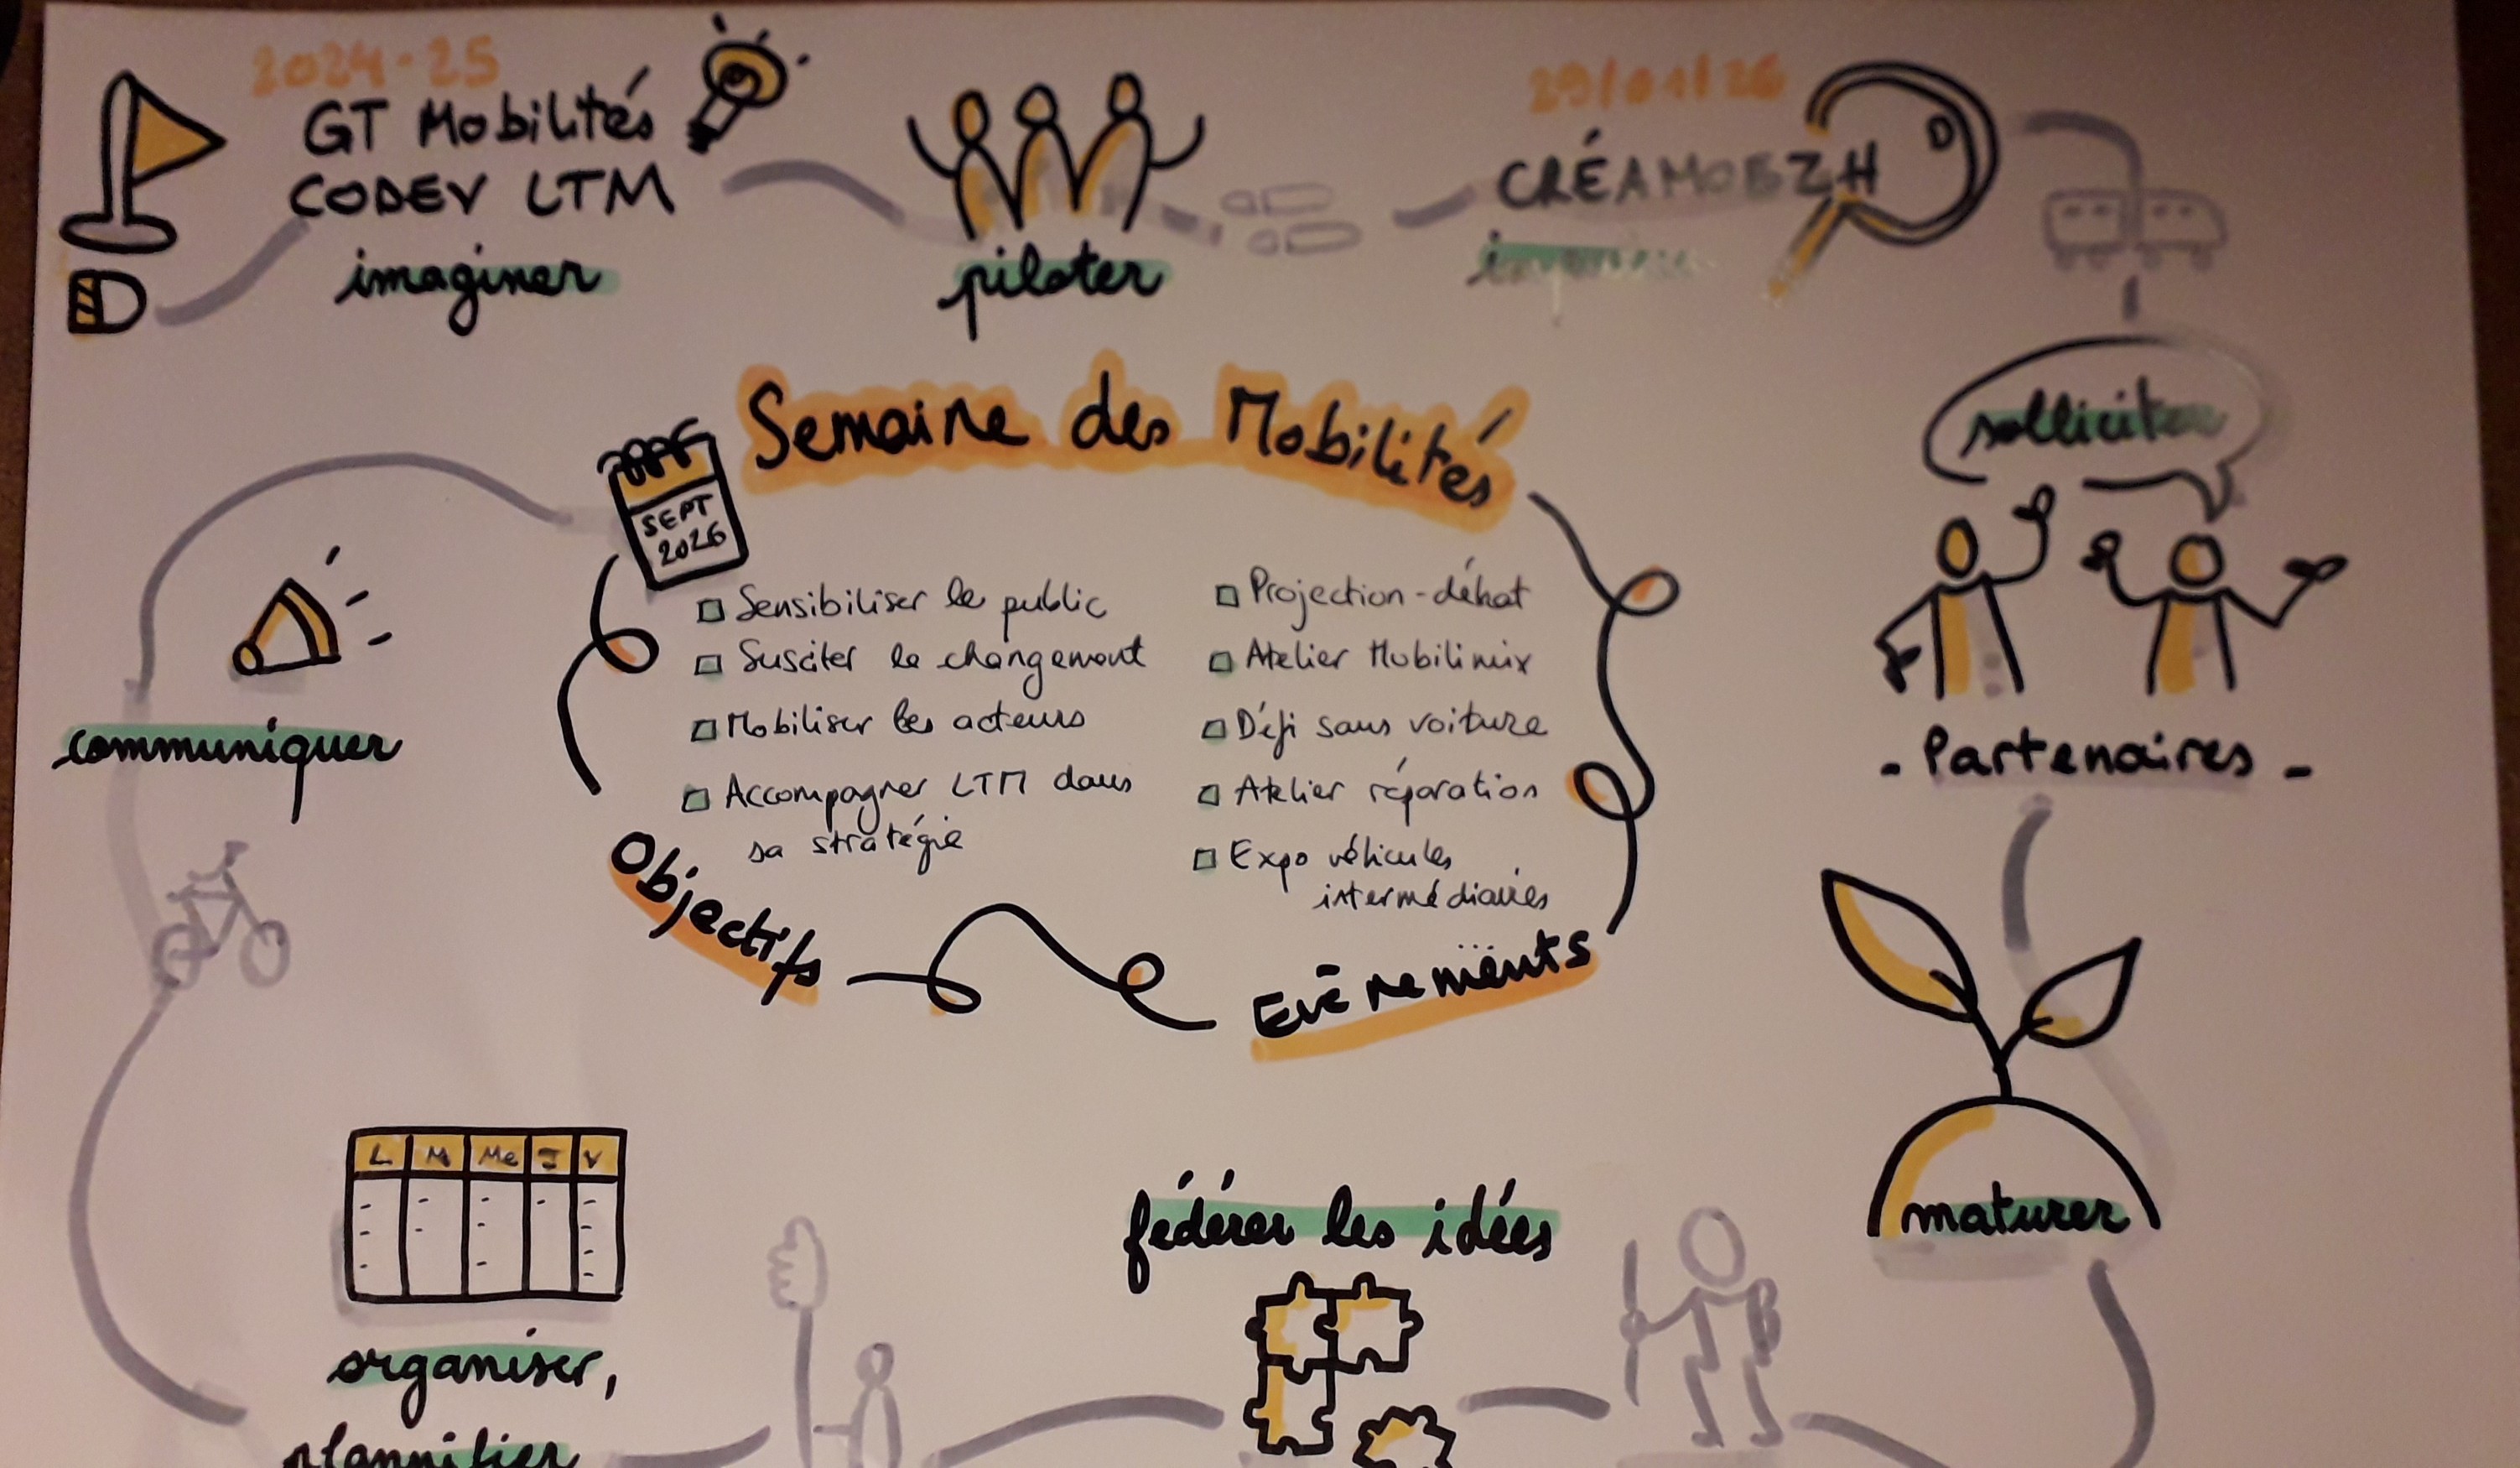 2024-25
GT Mobilités
CODEV LTM
imaginer
piloter
29/01/26
CRÉAMOBZH
D
solliciter
- Partenaires -
maturer
Semaine des Mobilités
SEPT
2026
Sensibiliser le public
Susciter le changement
Mobiliser les acteurs
Accompagner LTM dans
sa stratégie
Objectifs
Projection-débat
Atelier Mobilimix
Défi sans voiture
Atelier réparation
Expo véhicules
intermédiaires
...
Evènements
communiquer
fédérer les idées
L M Me J V
organiser,
plannifier